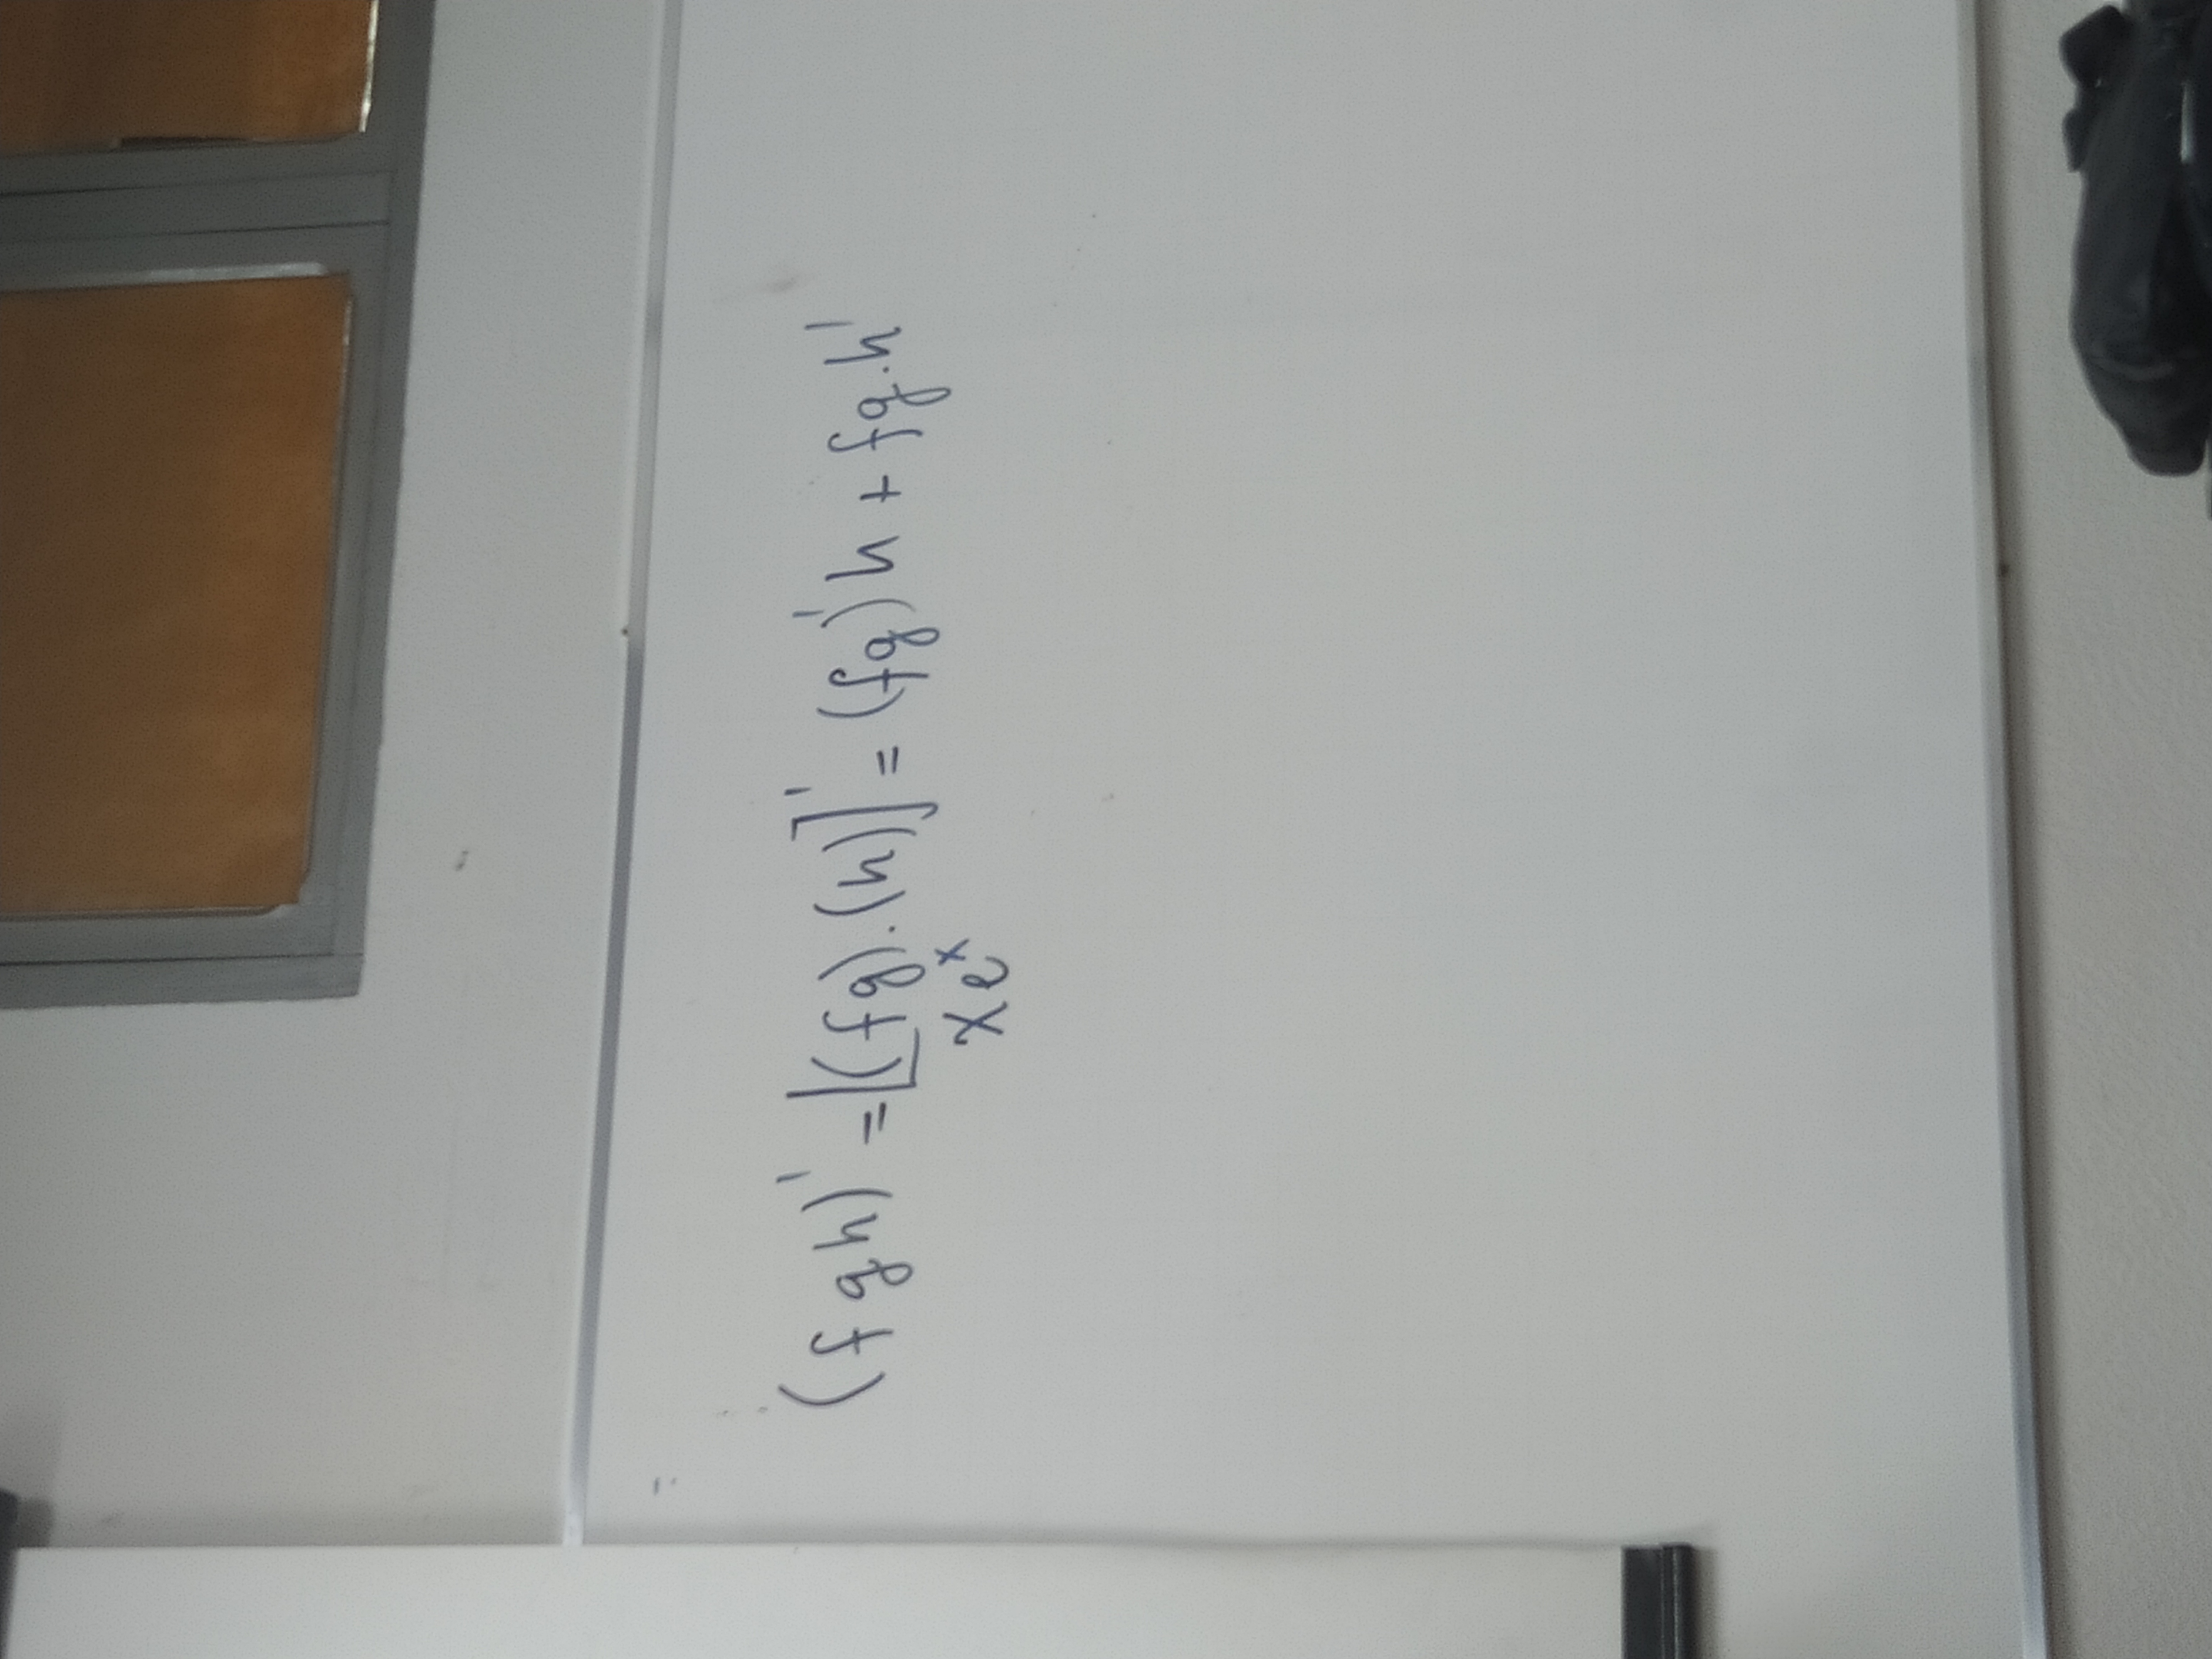 (fgh)' = [(fg).(h)]' = (fg)'h + fg.h'
xe^x